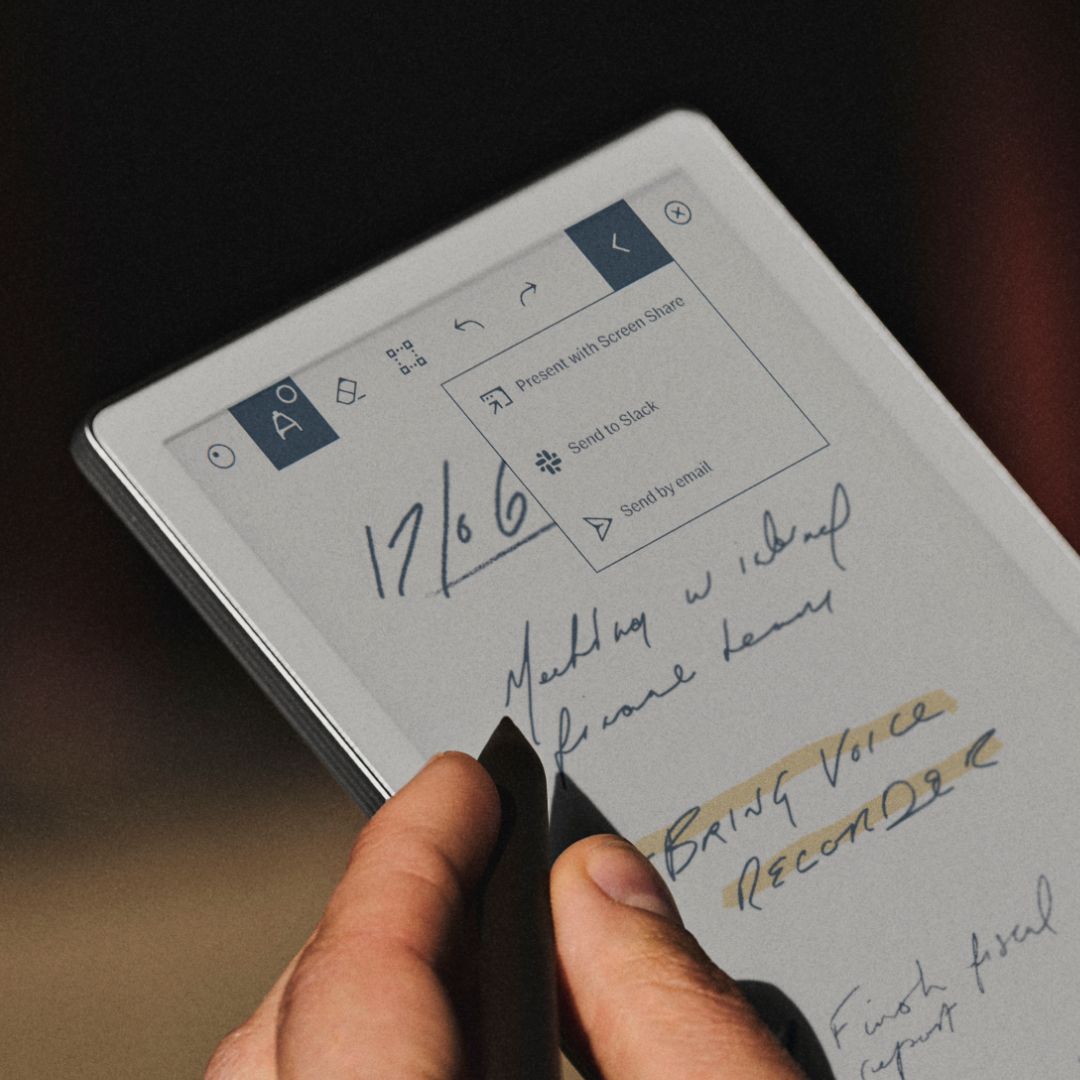 Present with Screen Share
Send to Slack
Send by email
17/06
Meeting w internal
finance team
BRING VOICE
RECORDER
Finish fiscal
report